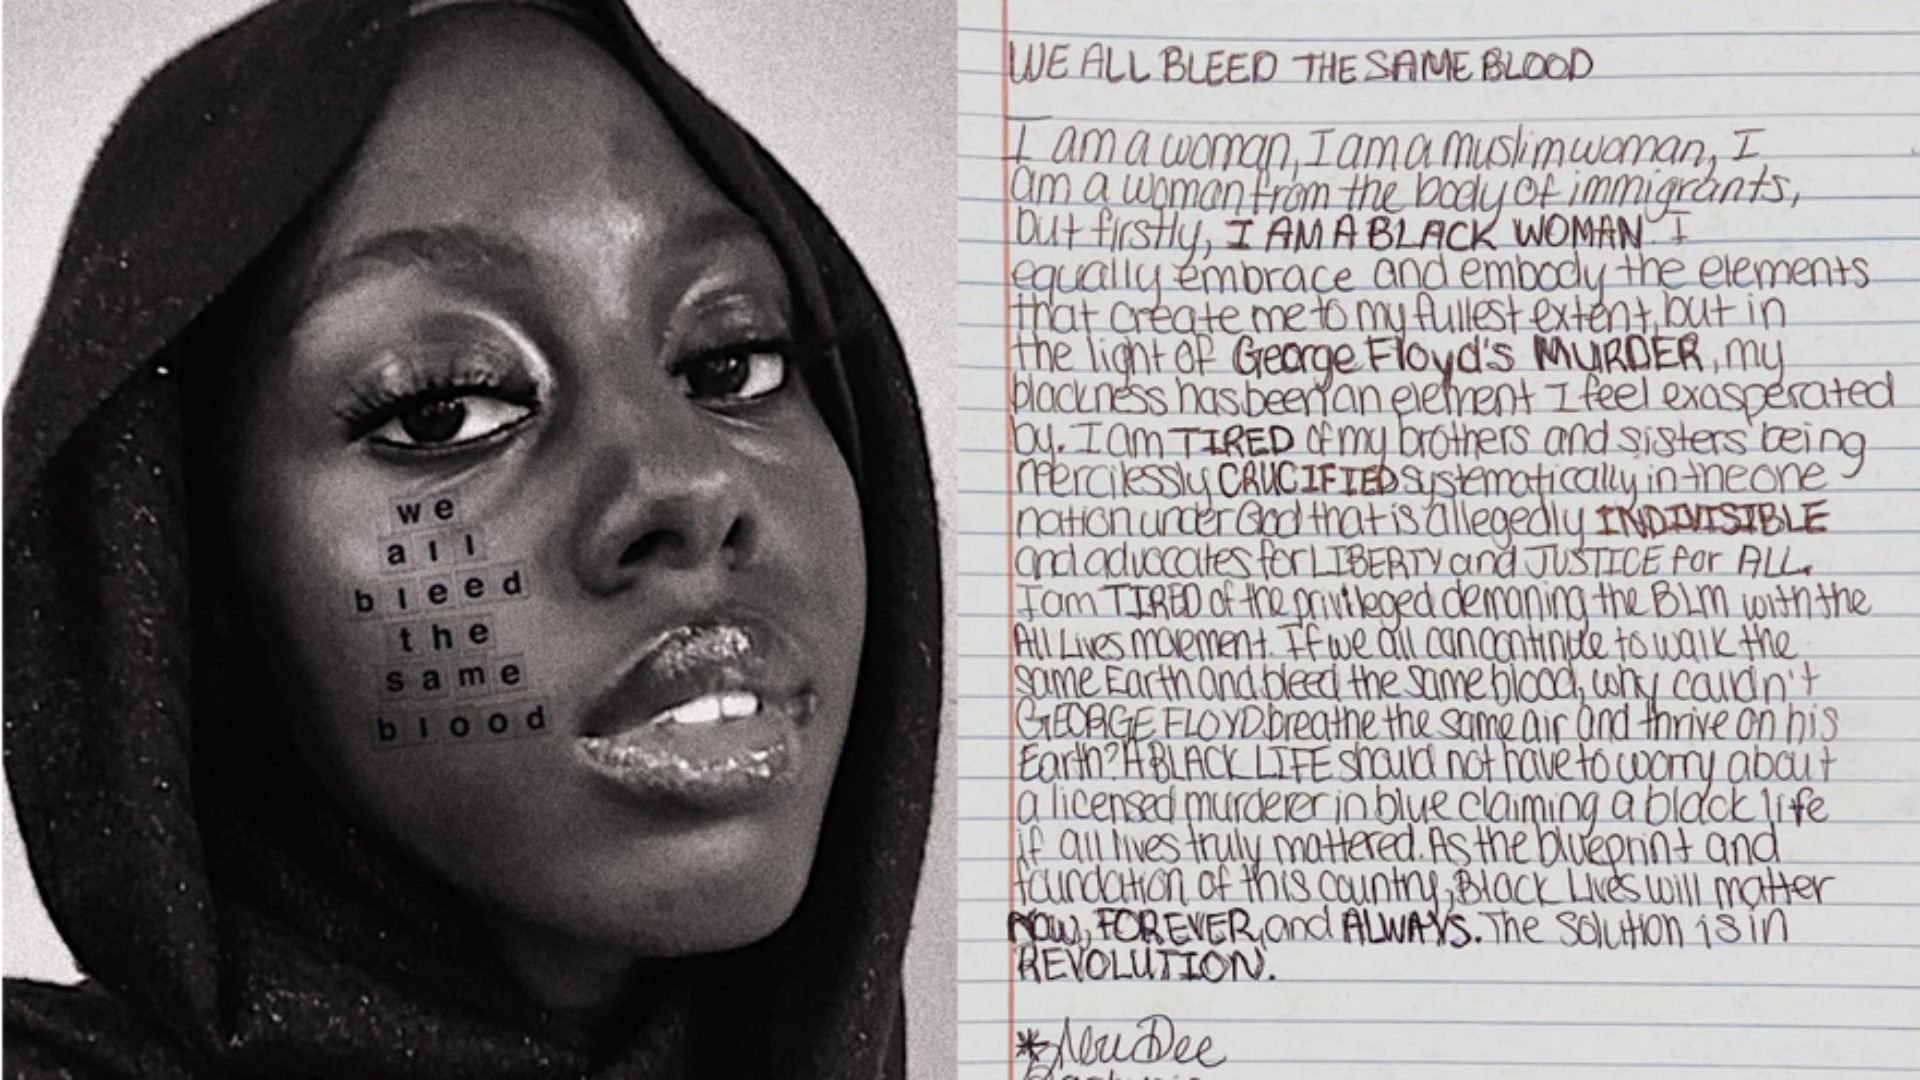 we
all
bleed
the
same
blood
WE ALL BLEED THE SAME BLOOD
I am a woman, I am a muslim woman, I
am a woman from the body of immigrants,
but firstly, I AM A BLACK WOMAN. I
equally embrace and embody the elements
that create me to my fullest extent, but in
the light of George Floyd's MURDER, my
blackness has been an element I feel exasperated
by. I am TIRED of my brothers and sisters being
mercilessly CRUCIFIED systematically in the one
nation under God that is allegedly INDIVISIBLE
and advocates for LIBERTY and JUSTICE for ALL.
I am TIRED of the privileged demaning the BLM with the
All Lives movement. If we all can continue to walk the
same Earth and bleed the same blood, why couldn't
GEORGE FLOYD breathe the same air and thrive on his
Earth? A BLACK LIFE should not have to worry about
a licensed murderer in blue claiming a black life
if all lives truly mattered. As the blueprint and
foundation of this country, Black Lives will matter
NOW, FOREVER, and ALWAYS. The solution is in
REVOLUTION.
Dee